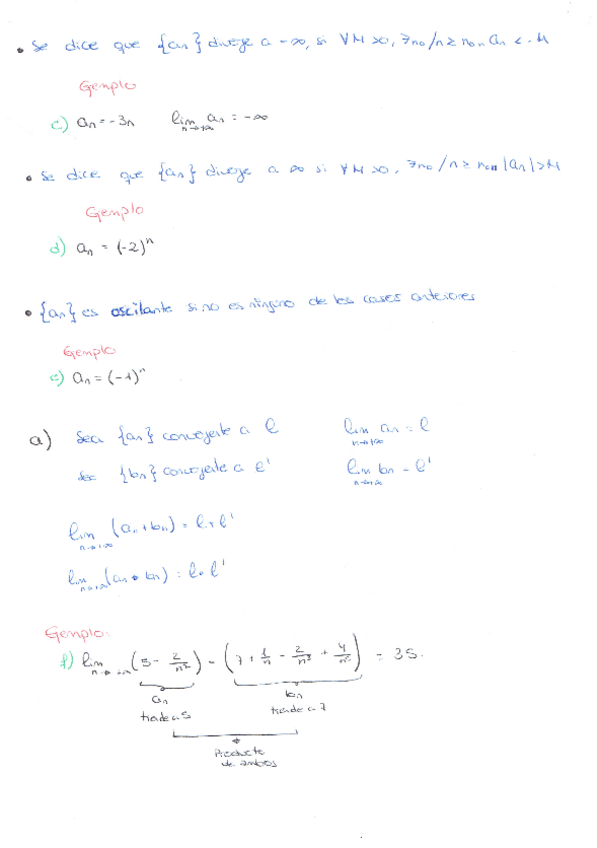 • Se dice que {an} diverge a -∞, si ∀M>0, ∃n₀/n≥n₀ₙ an < -M
Ejemplo
c) an = -3n lim n→+∞ an = -∞
• Se dice que {an} diverge a ∞ si ∀M>0, ∃n₀/n≥n₀ |an|>M
Ejemplo
d) an = (-2)ⁿ
• {an} es oscilante si no es ninguno de los casos anteriores
Ejemplo
e) an = (-1)ⁿ
a) Sea {an} convergente a l lim n→+∞ an = l
Sea {bn} convergente a l' lim n→+∞ bn = l'
lim n→+∞ (an + bn) = l + l'
lim n→+∞ (an • bn) = l • l'
Ejemplo:
f) lim n→+∞ (5 - 2/n²) - (7 + 1/n - 2/n³ + 4/n⁵) = 35.
an bn
tiende a 5 tiende a 7
*
Producto
de ambos